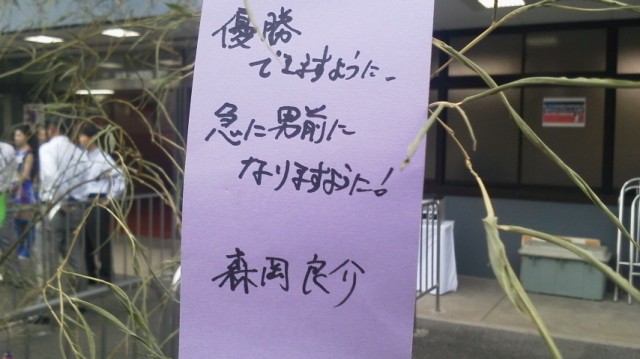 優勝
できますように、
急に男前に
なりますように!
森岡良介